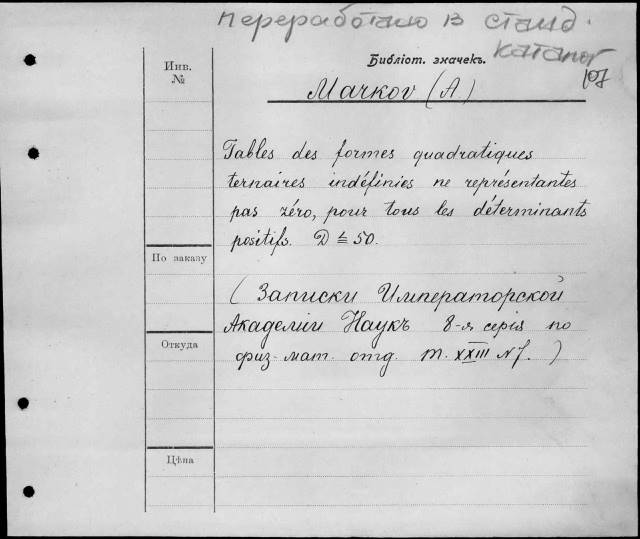 переработано в станд.
каталог
Библіот. значекъ.
107
Инв.
№
Markov (A.)
Tables des formes quadratiques
ternaires indéfinies ne représentantes
pas zéro, pour tous les déterminants
positifs. D ≦ 50.
По заказу
(Записки Императорской
Академіи Наукъ 8-я серія по
физ-мат. отд. т. XXIII N 7. )
Откуда
Цѣна